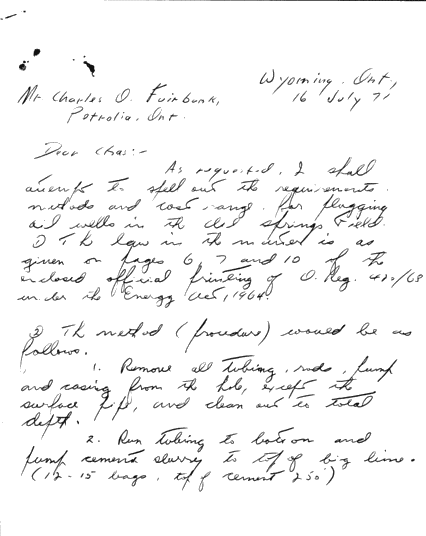 Wyoming, Ont,
16 July 71
Mr Charles O. Fairbank,
Petrolia, Ont.
Dear Chas:-
As requested, I shall
attempt to spell out the requirements,
methods and cost range for plugging
oil wells in the Oil Springs Field.
① The law in the matter is as
given on pages 6, 7 and 10 of the
enclosed official printing of O. Reg. 420/68
under the Energy Act, 1964.
② The method (procedure) would be as
follows.
1. Remove all tubing, rods, pump
and casing from the hole, except the
surface pipe, and clean out to total
depth.
2. Run tubing to bottom and
pump cement slurry to top of big lime.
(12-15 bags, top of cement 250')